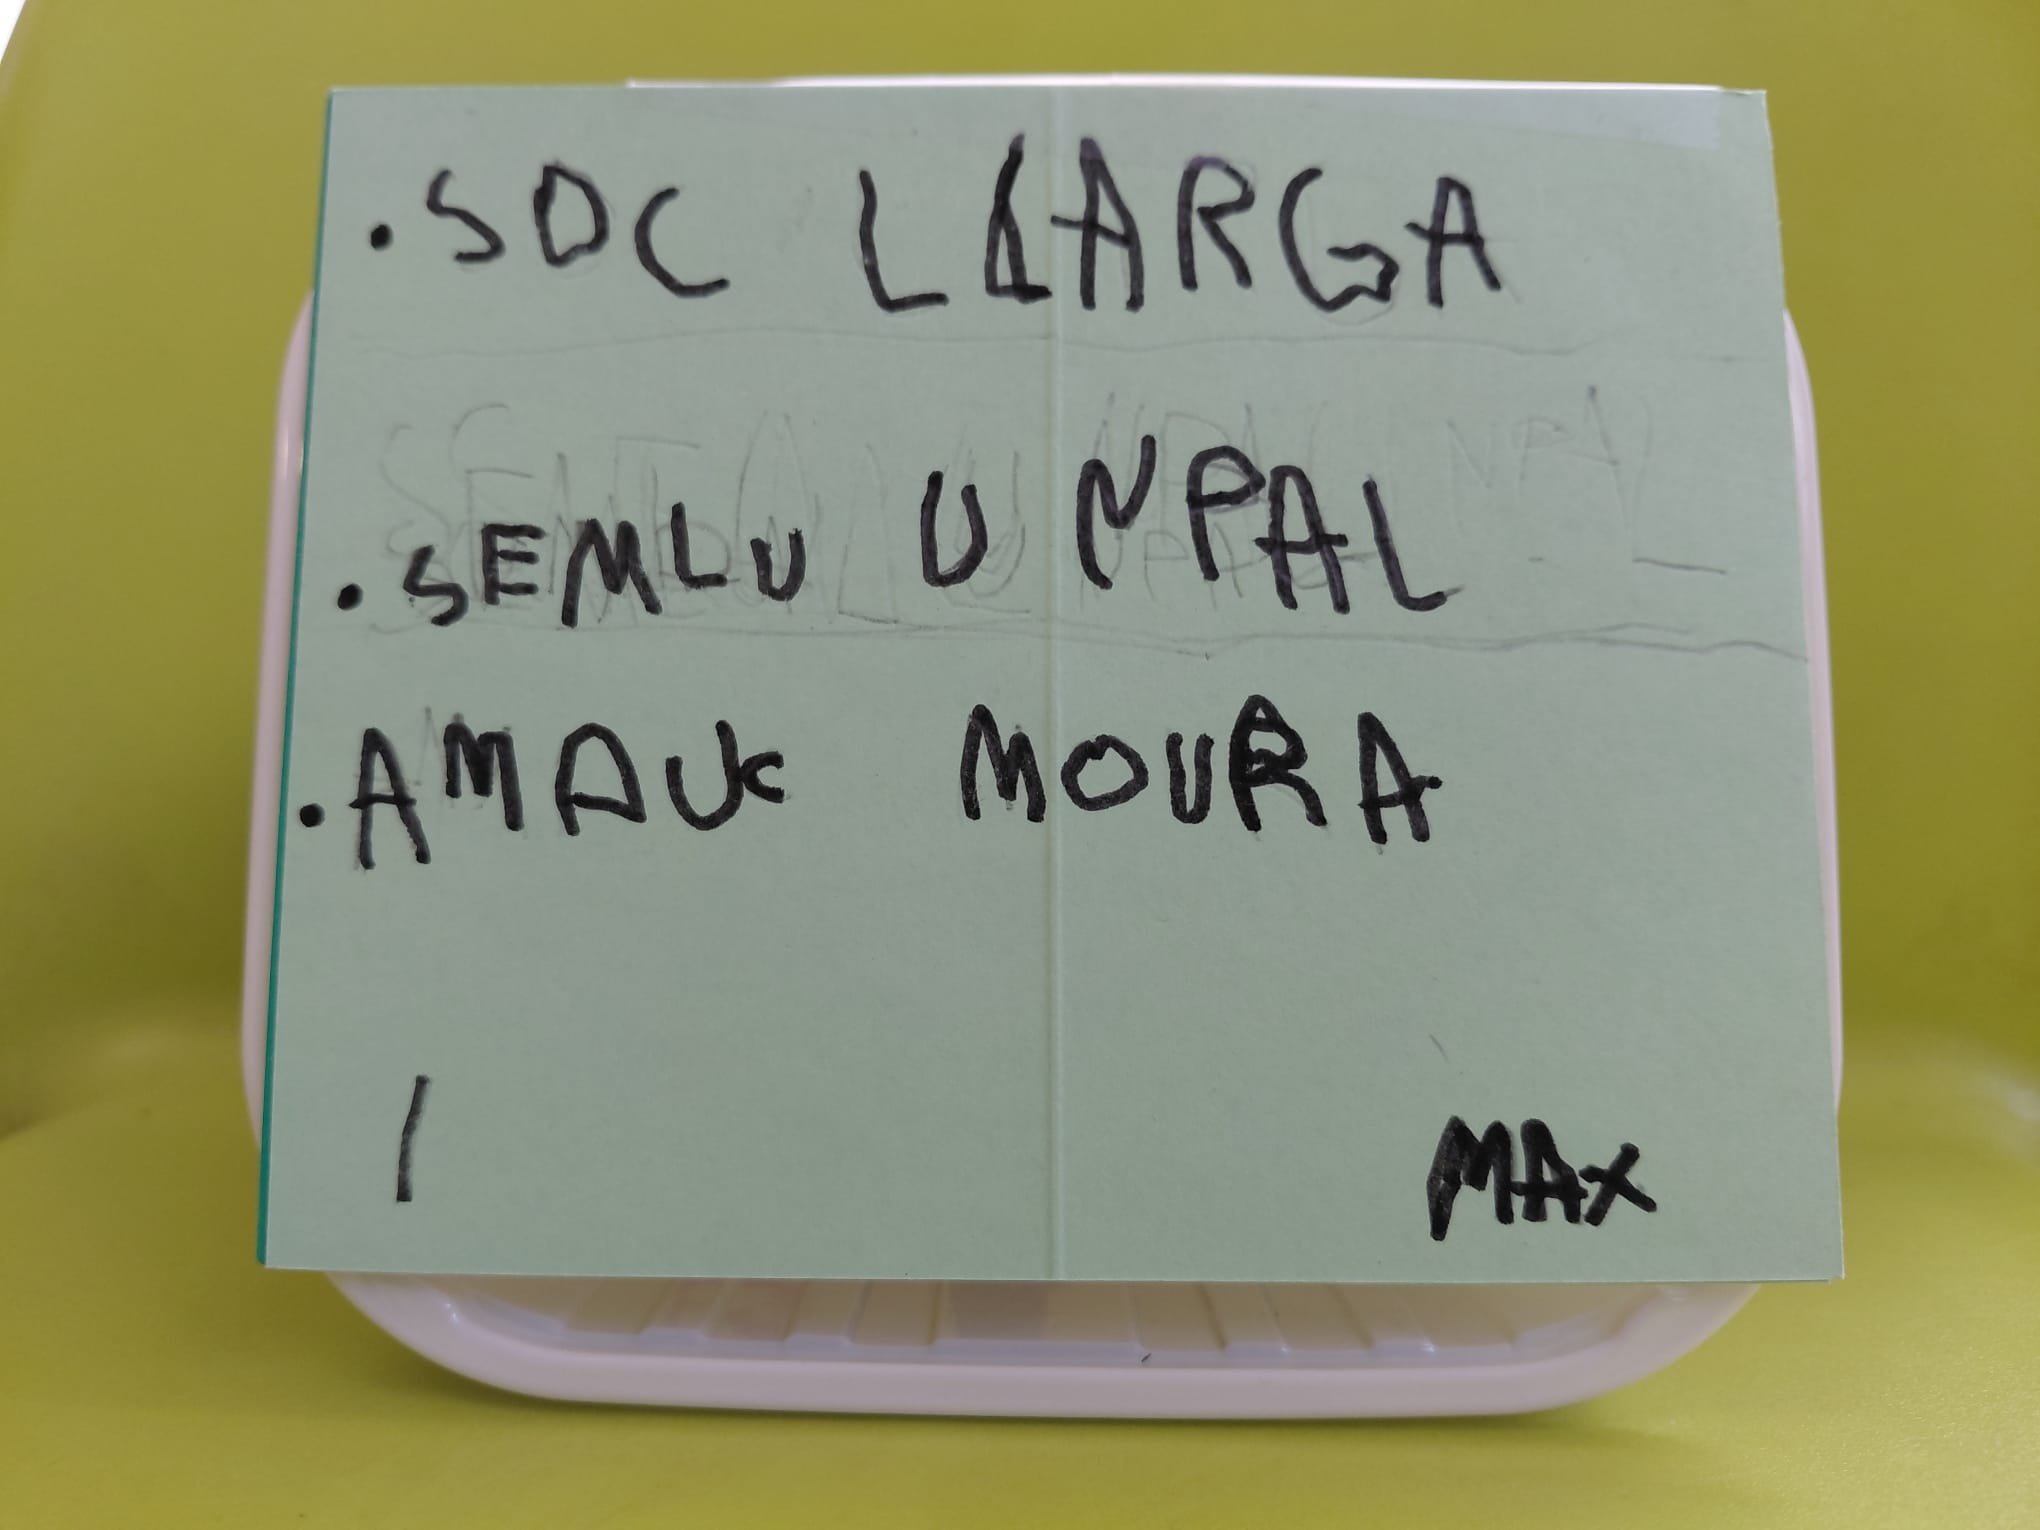 . SOC LLARGA
. SEMLU U NPAL
. AMAUC MOURA
1 MAX